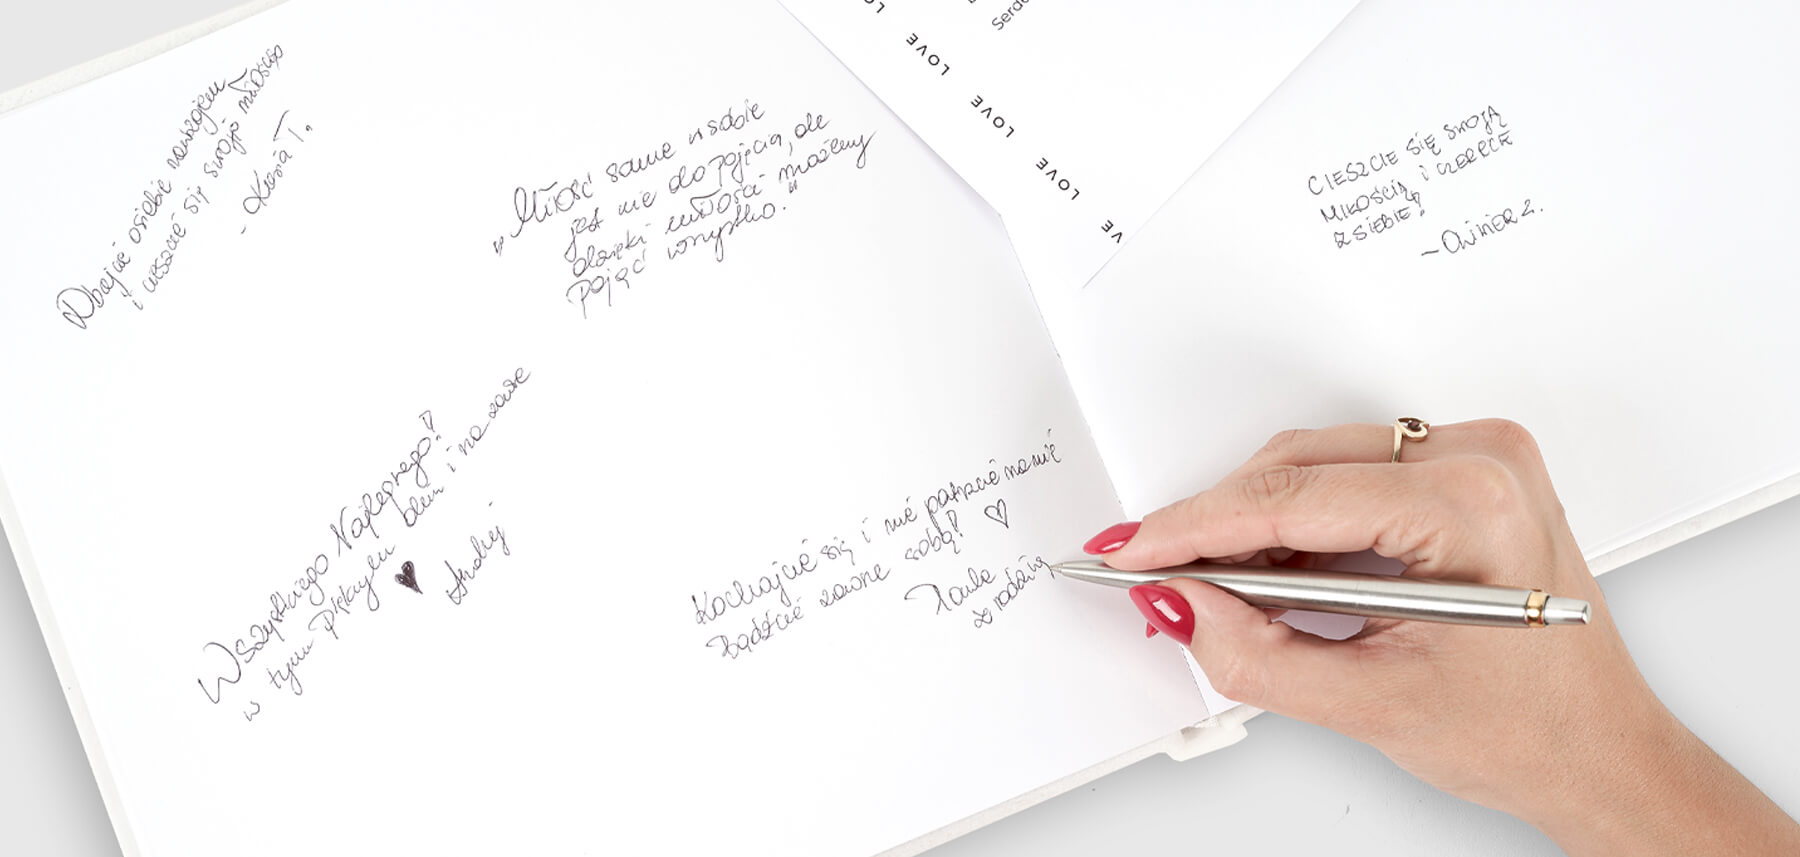 Dbajcie o siebie nawzajem
i cieszcie się swoją miłością
- Kasia T.
"Miłość sama w sobie
jest nie do pojęcia, ale
dzięki miłości możemy
pojąć wszystko."
Wszystkiego Najlepszego!
w tym Pięknym dniu i na zawsze
Andrzej
Kochajcie się i nie patrzcie na nic
Bądźcie zawsze sobą!
Paula
z rodziną
LOVE
LOVE
LOVE
LOVE
VE
Serde
CIESZCIE SIĘ SWOJĄ
MIŁOŚCIĄ I
Z SIEBIE!